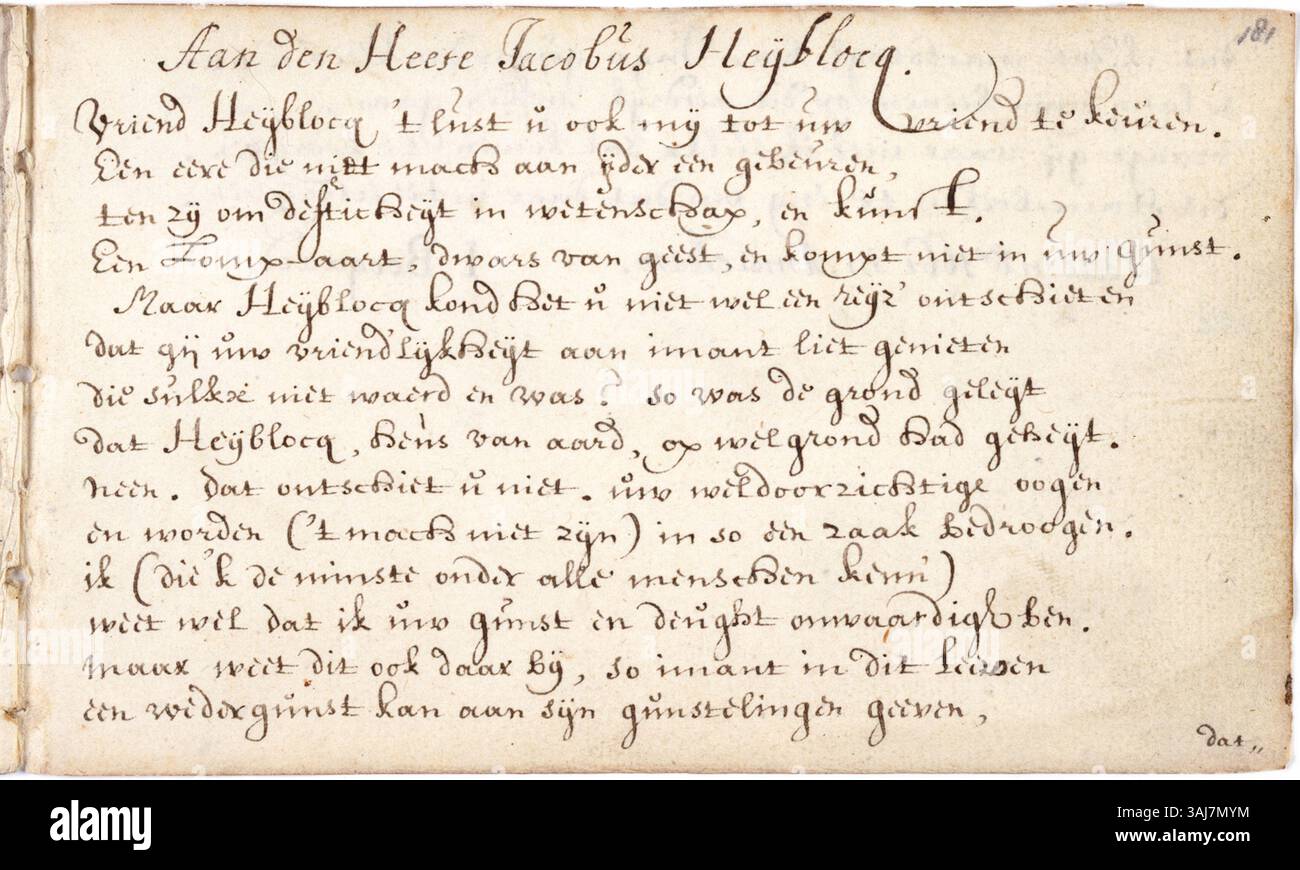 181
Aan den Heere Jacobus Heyblocq.
Vriend Heyblocq 't lust u ook mij tot uw vriend te keuren.
Een eere die niet mach aan yder een gebeuren,
ten zij om defticheyt in wetenschap, en kunst.
Een Lomp-aart, dwars van geest, en kompt niet in uw gunst.
Maar Heyblocq kond het u niet wel een reyz' ontschieten
dat gij uw vriend'lykheyt aan imant liet genieten
die sulkx niet waerd en was? so was de grond geleyt
dat Heyblocq, heus van aard, op welgrond had geheyt.
neen. dat ontschiet u niet. uw weldoorzichtige oogen
en worden ('t mach niet zijn) in so een zaak bedroogen.
ik (die 'k de minste onder alle menschen kenn')
weet wel dat ik uw gunst en deught onwaardigh ben.
maar weet dit ook daar bij, so imant in dit leeven
een wedergunst kan aan sijn gunstelingen geeven,
dat,,
alamy
Image ID: 3AJ7MYM
www.alamy.com